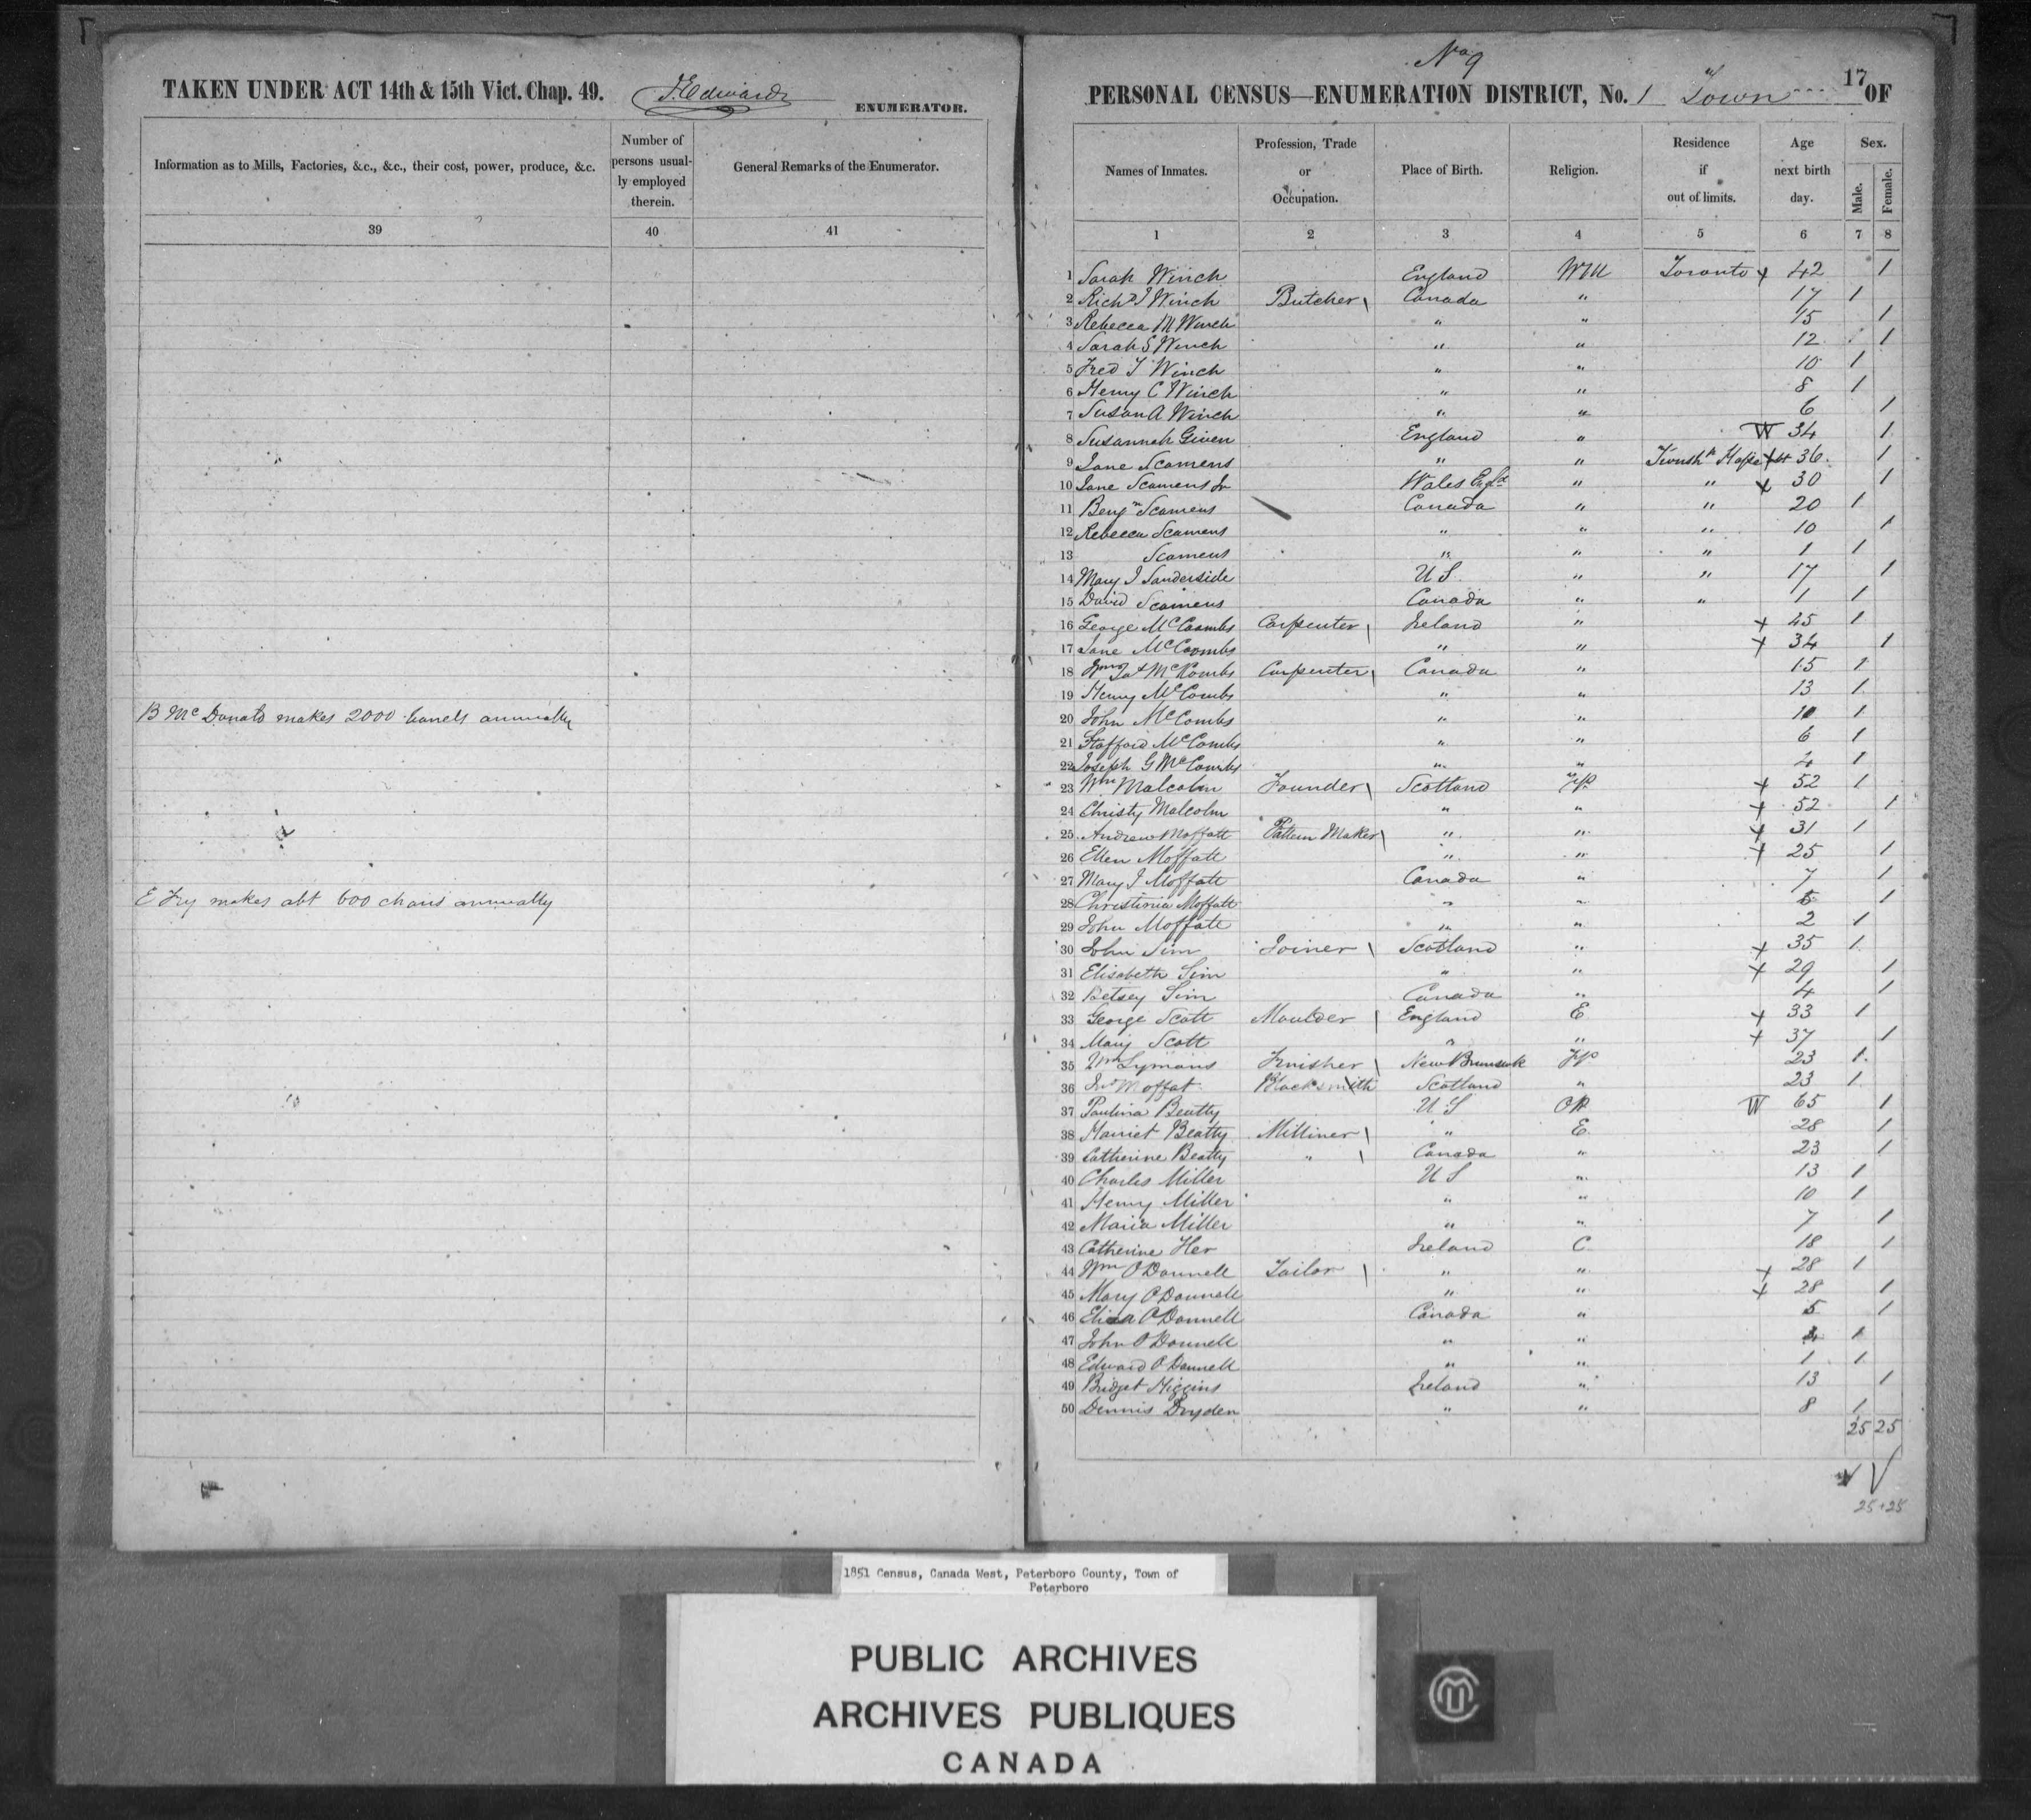 TAKEN UNDER ACT 14th & 15th Vict. Chap. 49. Edwards ENUMERATOR.
Information as to Mills, Factories, &c., &c., their cost, power, produce, &c.
Number of persons usual-ly employed therein.
General Remarks of the Enumerator.
39 40 41
B McDonald makes 2000 barrels annually
E Fry makes abt 600 chairs annually
No 9
17
PERSONAL CENSUS—ENUMERATION DISTRICT, No. 1 Town OF
Names of Inmates.
Profession, Trade or Occupation.
Place of Birth.
Religion.
Residence if out of limits.
Age next birth day.
Sex.
Male.
Female.
1 2 3 4 5 6 7 8
1 Sarah Winch England WM Toronto + 42 1
2 Richd J Winch Butcher \ Canada " 17 1
3 Rebecca M Winch " " 15 1
4 Sarah S Winch " " 12 1
5 Fred T Winch " " 10 1
6 Henry C Winch " " 8 1
7 Susan A Winch " " 6 1
8 Susannah Given England " W 34 1
9 Jane Scamens " " Townsh Hope 36 1
10 Jane Scamens Jr Wales Engd " " + 30 1
11 Benjn Scamens Canada " " 20 1
12 Rebecca Scamens " " " 10 1
13 Scamens " " " 1 1
14 Mary J Sanderside U S " " 17 1
15 David Scamens Canada " " 1 1
16 George McCoombs Carpenter \ Ireland " + 45 1
17 Jane McCoombs " " + 34 1
18 Wm McKombs Carpenter \ Canada " 15 1
19 Henry McCombs " " 13 1
20 John McCombs " " 10 1
21 Stafford McCombs " " 6 1
22 Joseph G McCombs " " 4 1
23 Wm Malcolm Founder \ Scotland FP + 52 1
24 Christy Malcolm " " + 52 1
25 Andrew Moffatt Pattern Maker \ " " + 31 1
26 Ellen Moffatt " " + 25 1
27 Mary J Moffatt Canada " 7 1
28 Christinia Moffatt " " 5 1
29 John Moffatt " " 2 1
30 John Sim Joiner \ Scotland " + 35 1
31 Elisabeth Sim " " + 29 1
32 Betsey Sim Canada " 4 1
33 George Scott Moulder \ England E + 33 1
34 Mary Scott " " + 37 1
35 Wm Lymans Finisher \ New Brunswk FP 23 1
36 Moffat Blacksmith Scotland " 23 1
37 Paulina Beatty U S W 65 1
38 Harriet Beatty Milliner \ " E 28 1
39 Catherine Beatty " \ Canada " 23 1
40 Charles Miller U S " 13 1
41 Henry Miller " " 10 1
42 Maria Miller " " 7 1
43 Catherine Her Ireland C 18 1
44 Wm O'Donnell Tailor \ " " + 28 1
45 Mary O'Donnell " " + 28 1
46 Eliza O'Donnell Canada " 5 1
47 John O'Donnell " " 1
48 Edward O'Donnell " " 1 1
49 Bridget Higgins Ireland " 13 1
50 Dennis Dryden " " 8 1
25 25
25+25
1851 Census, Canada West, Peterboro County, Town of
Peterboro
PUBLIC ARCHIVES
ARCHIVES PUBLIQUES
CANADA